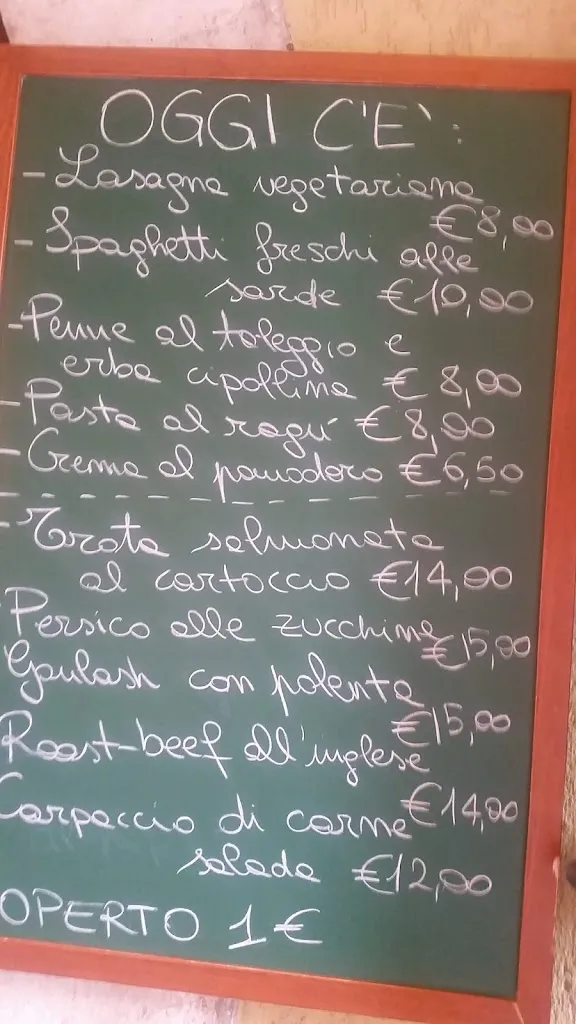 OGGI C'E':
- Lasagne vegetariane
€ 8,00
- Spaghetti freschi alle
sarde € 10,00
- Penne al taleggio e
erba cipollina € 8,00
- Pasta al ragù € 8,00
- Crema al pomodoro € 6,50
- Trota salmonata
al cartoccio € 14,00
Persico alle zucchine
€ 15,00
Goulash con polenta
€ 15,00
Roast-beef all'inglese
€ 14,00
Carpaccio di carne
salada € 12,00
OPERTO 1 €